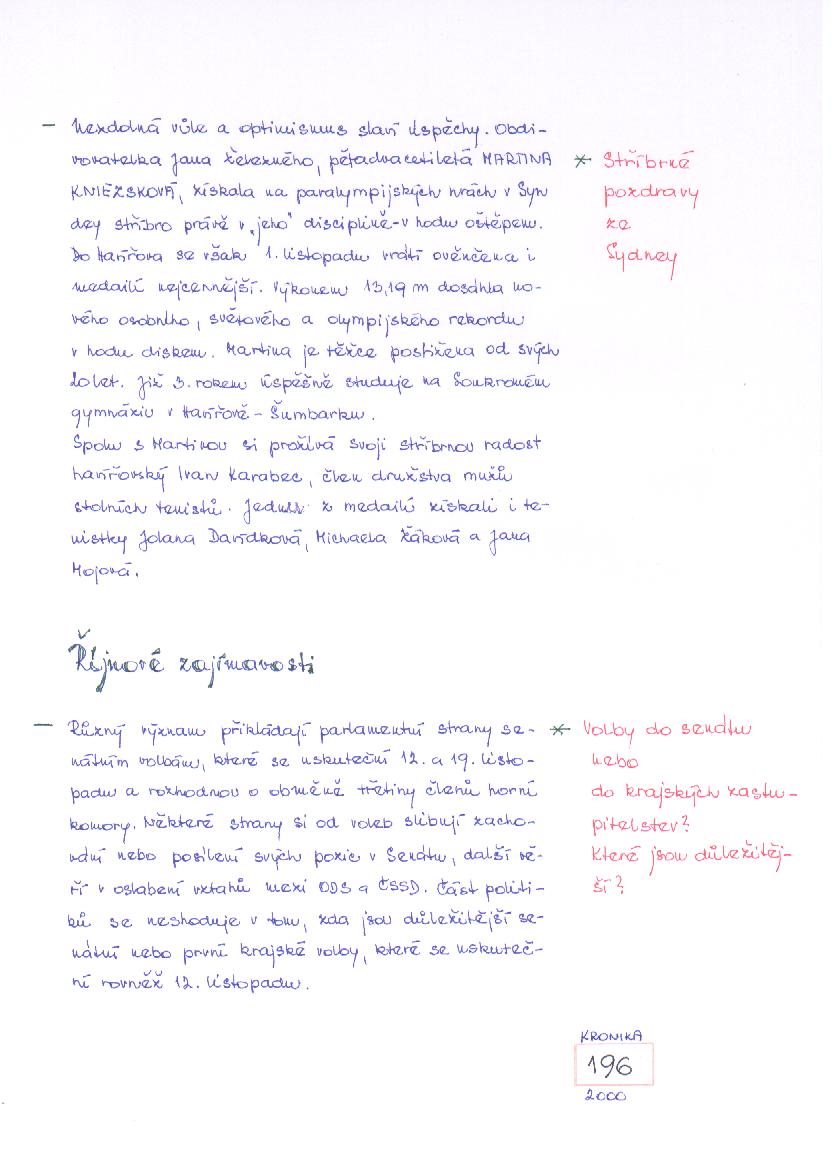 – Nezdolná vůle a optimismus slaví úspěchy. Obdi-
vovatelka Jana Železného, pětadvacetiletá MARTINA
KNIEZSKOVÁ, získala na paralympijských hrách v Syn
dey stříbro právě v „jeho" disciplině-v hodu oštěpem.
Do Havířova se však 1. listopadu vrátí ověnčena i
medailí nejcennější. Výkonem 13,19 m dosáhla no-
vého osobního, světového a olympijského rekordu
v hodu diskem. Martina je těžce postižena od svých
20 let. Již 3. rokem úspěšně studuje na Soukromém
gymnáziu v Havířově – Šumbarku.
Spolu s Martinou si prožívá svoji stříbrnou radost
havířovský Ivan Karabec, člen družstva mužů
stolních tenistů. Jednu z medailí získali i te-
nistky Jolana Davídková, Michaela Žáková a Jana
Mojová.
* Stříbrné
pozdravy
ze
Sydney
Říjnové zajímavosti
– Různý význam přikládají parlamentní strany se-
nátním volbám, které se uskuteční 12. a 19. listo-
padu a rozhodnou o obměně třetiny členů horní
komory. Některé strany si od voleb slibují zacho-
vání nebo posílení svých pozic v Senátu, další vě-
ří v oslabení vztahů mezi ODS a ČSSD. Část politi-
ků se neshoduje v tom, zda jsou důležitější se-
nátní nebo první krajské volby, které se uskuteč-
ní rovněž 12. listopadu.
* Volby do senátu
nebo
do krajských zastu-
pitelstev?
Které jsou důležitěj-
ší?
KRONIKA
196
2000